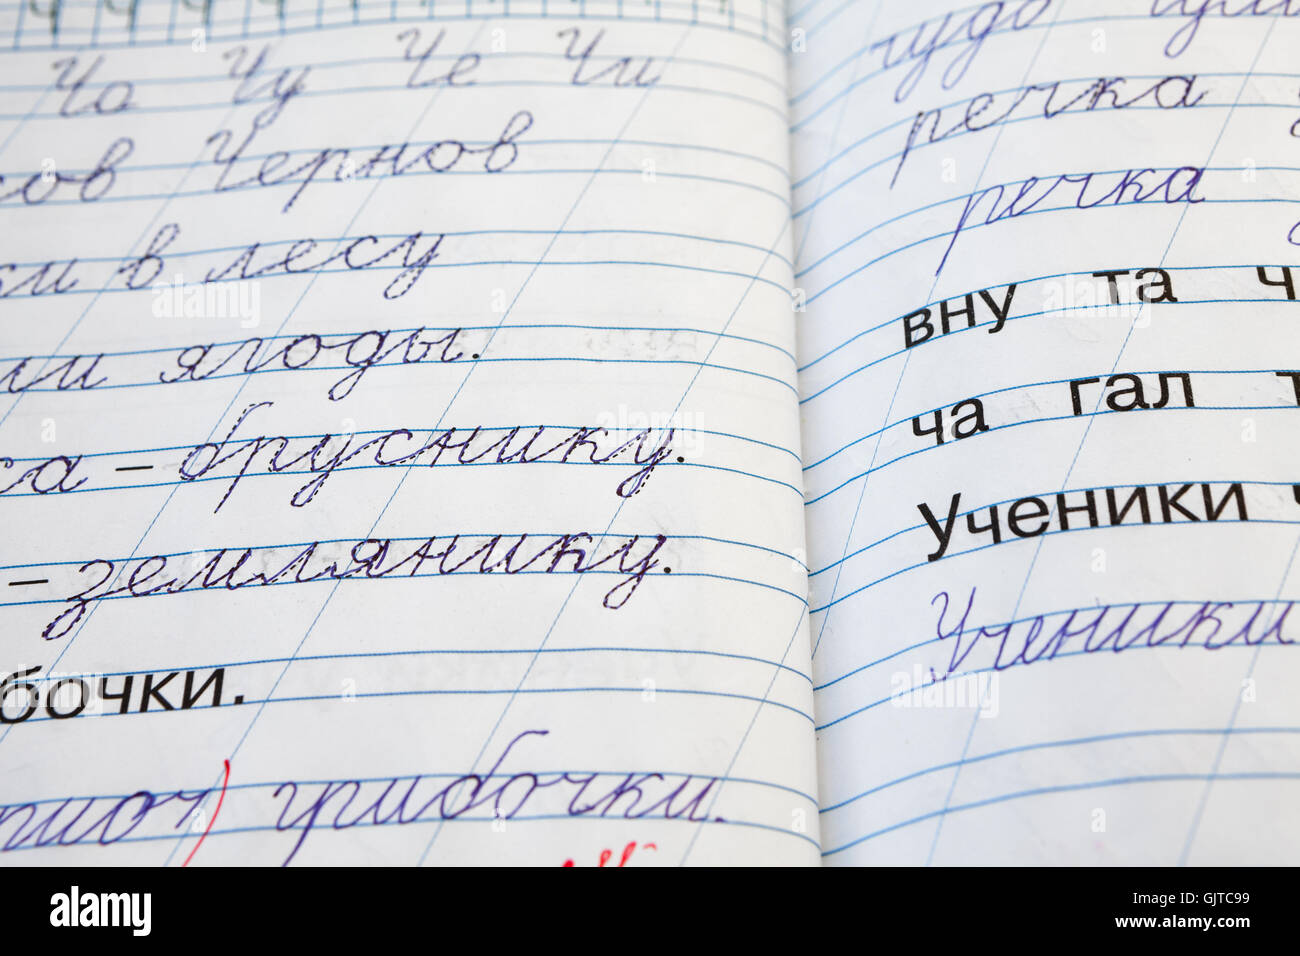 Ча Чу Че Чи
Чернов
в лесу
ягоды.
– бруснику.
– землянику.
бочки.
грибочки.
чудо
речка
речка
вну та
ча гал
Ученики
Ученики
alamy
Image ID: GJTC99
www.alamy.com